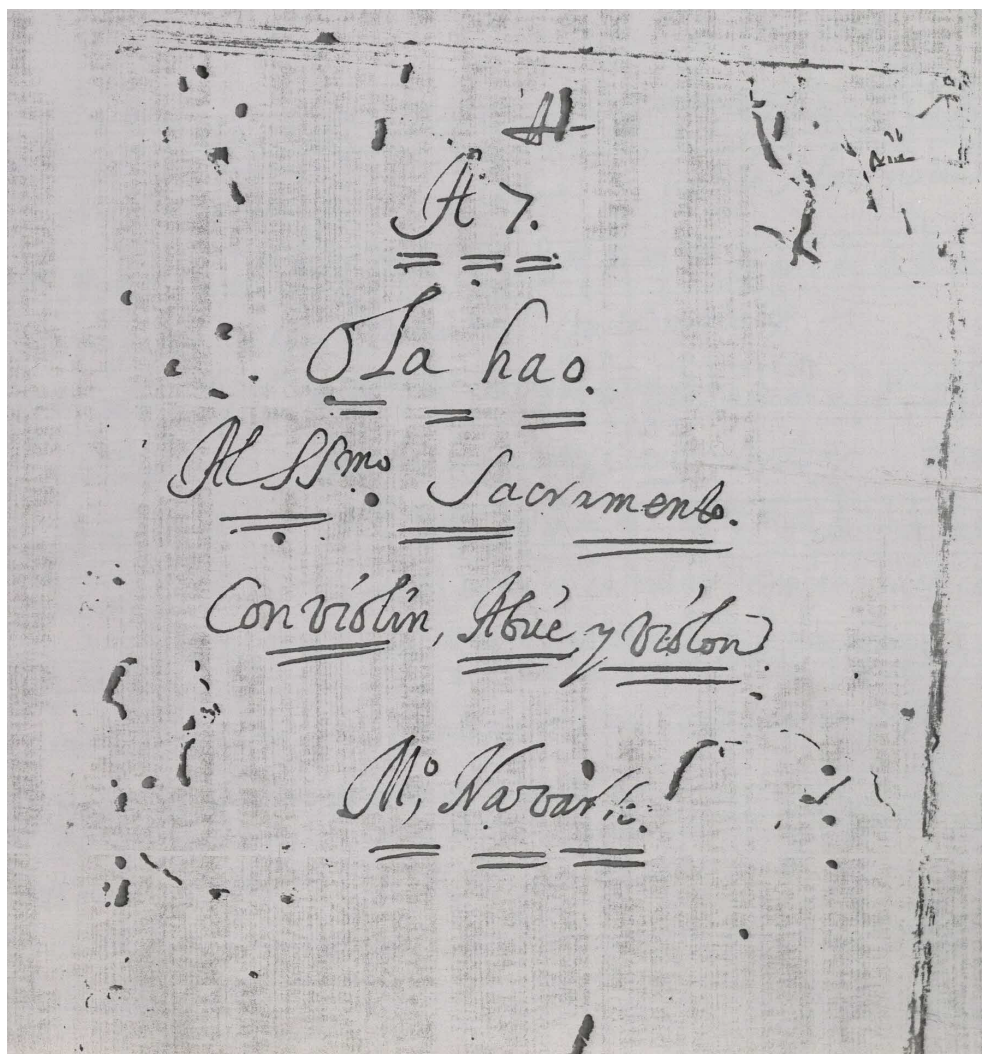 A 7.
Ola hao.
Al SSmo. Sacramento.
Con violin, Abue y violon.
Mo, Navarr